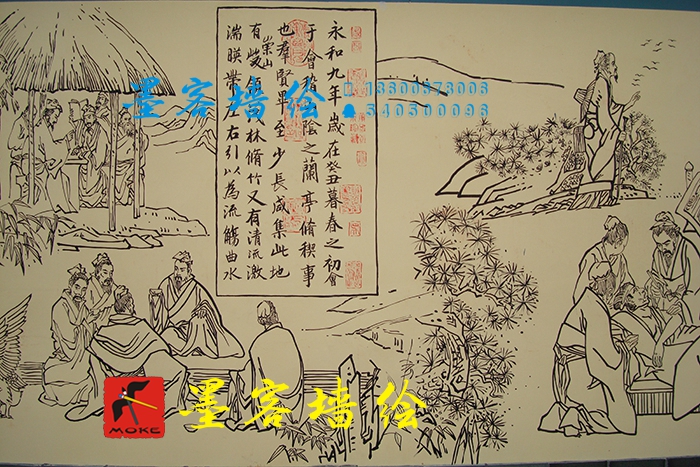 永和九年歲在癸丑暮春之初會
于會稽山陰之蘭亭脩稧事
也羣賢畢至少長咸集此地
有崇山峻領茂林脩竹又有清流激
湍暎帶左右引以為流觴曲水
墨客墙绘
MOKE
墨客墙绘